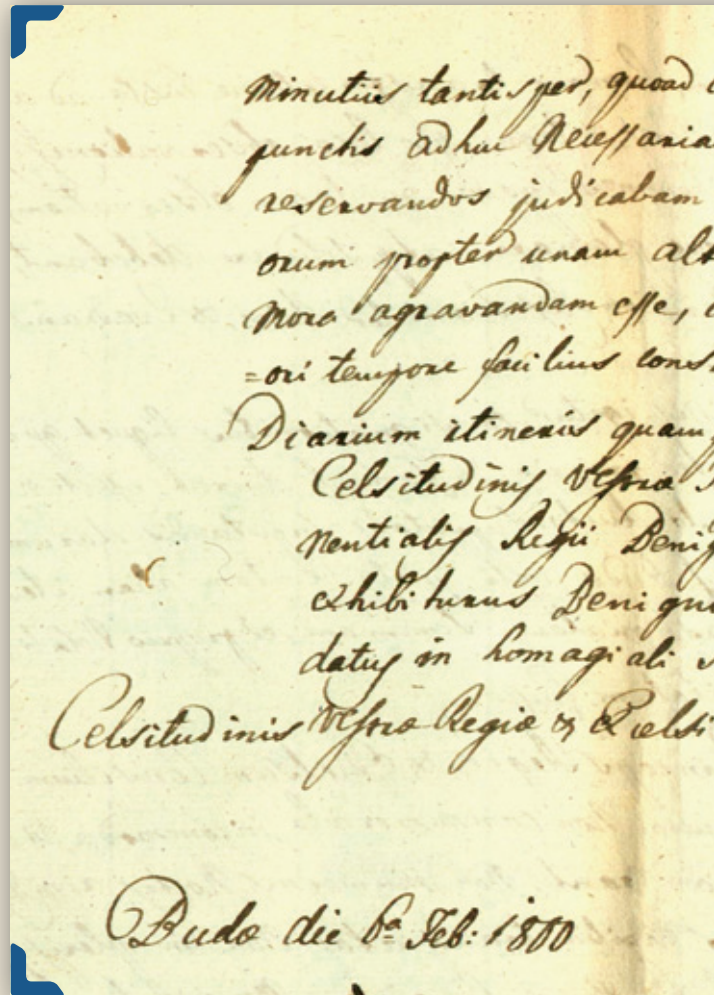 Minutiis tantisper, quoad
punctis adhuc Necessaria
reservandos judicabam
orum propter unam alt
mora agravandam esse,
=ori tempore facilius cons
Diarium itineris quam
Celsitudinis Vestræ
nentialis Regii Benig
exhibiturus Benign
datus in homagiali
Celsitudinis Vestræ Regiæ & Excelsi
Budæ die 6ª Feb: 1800